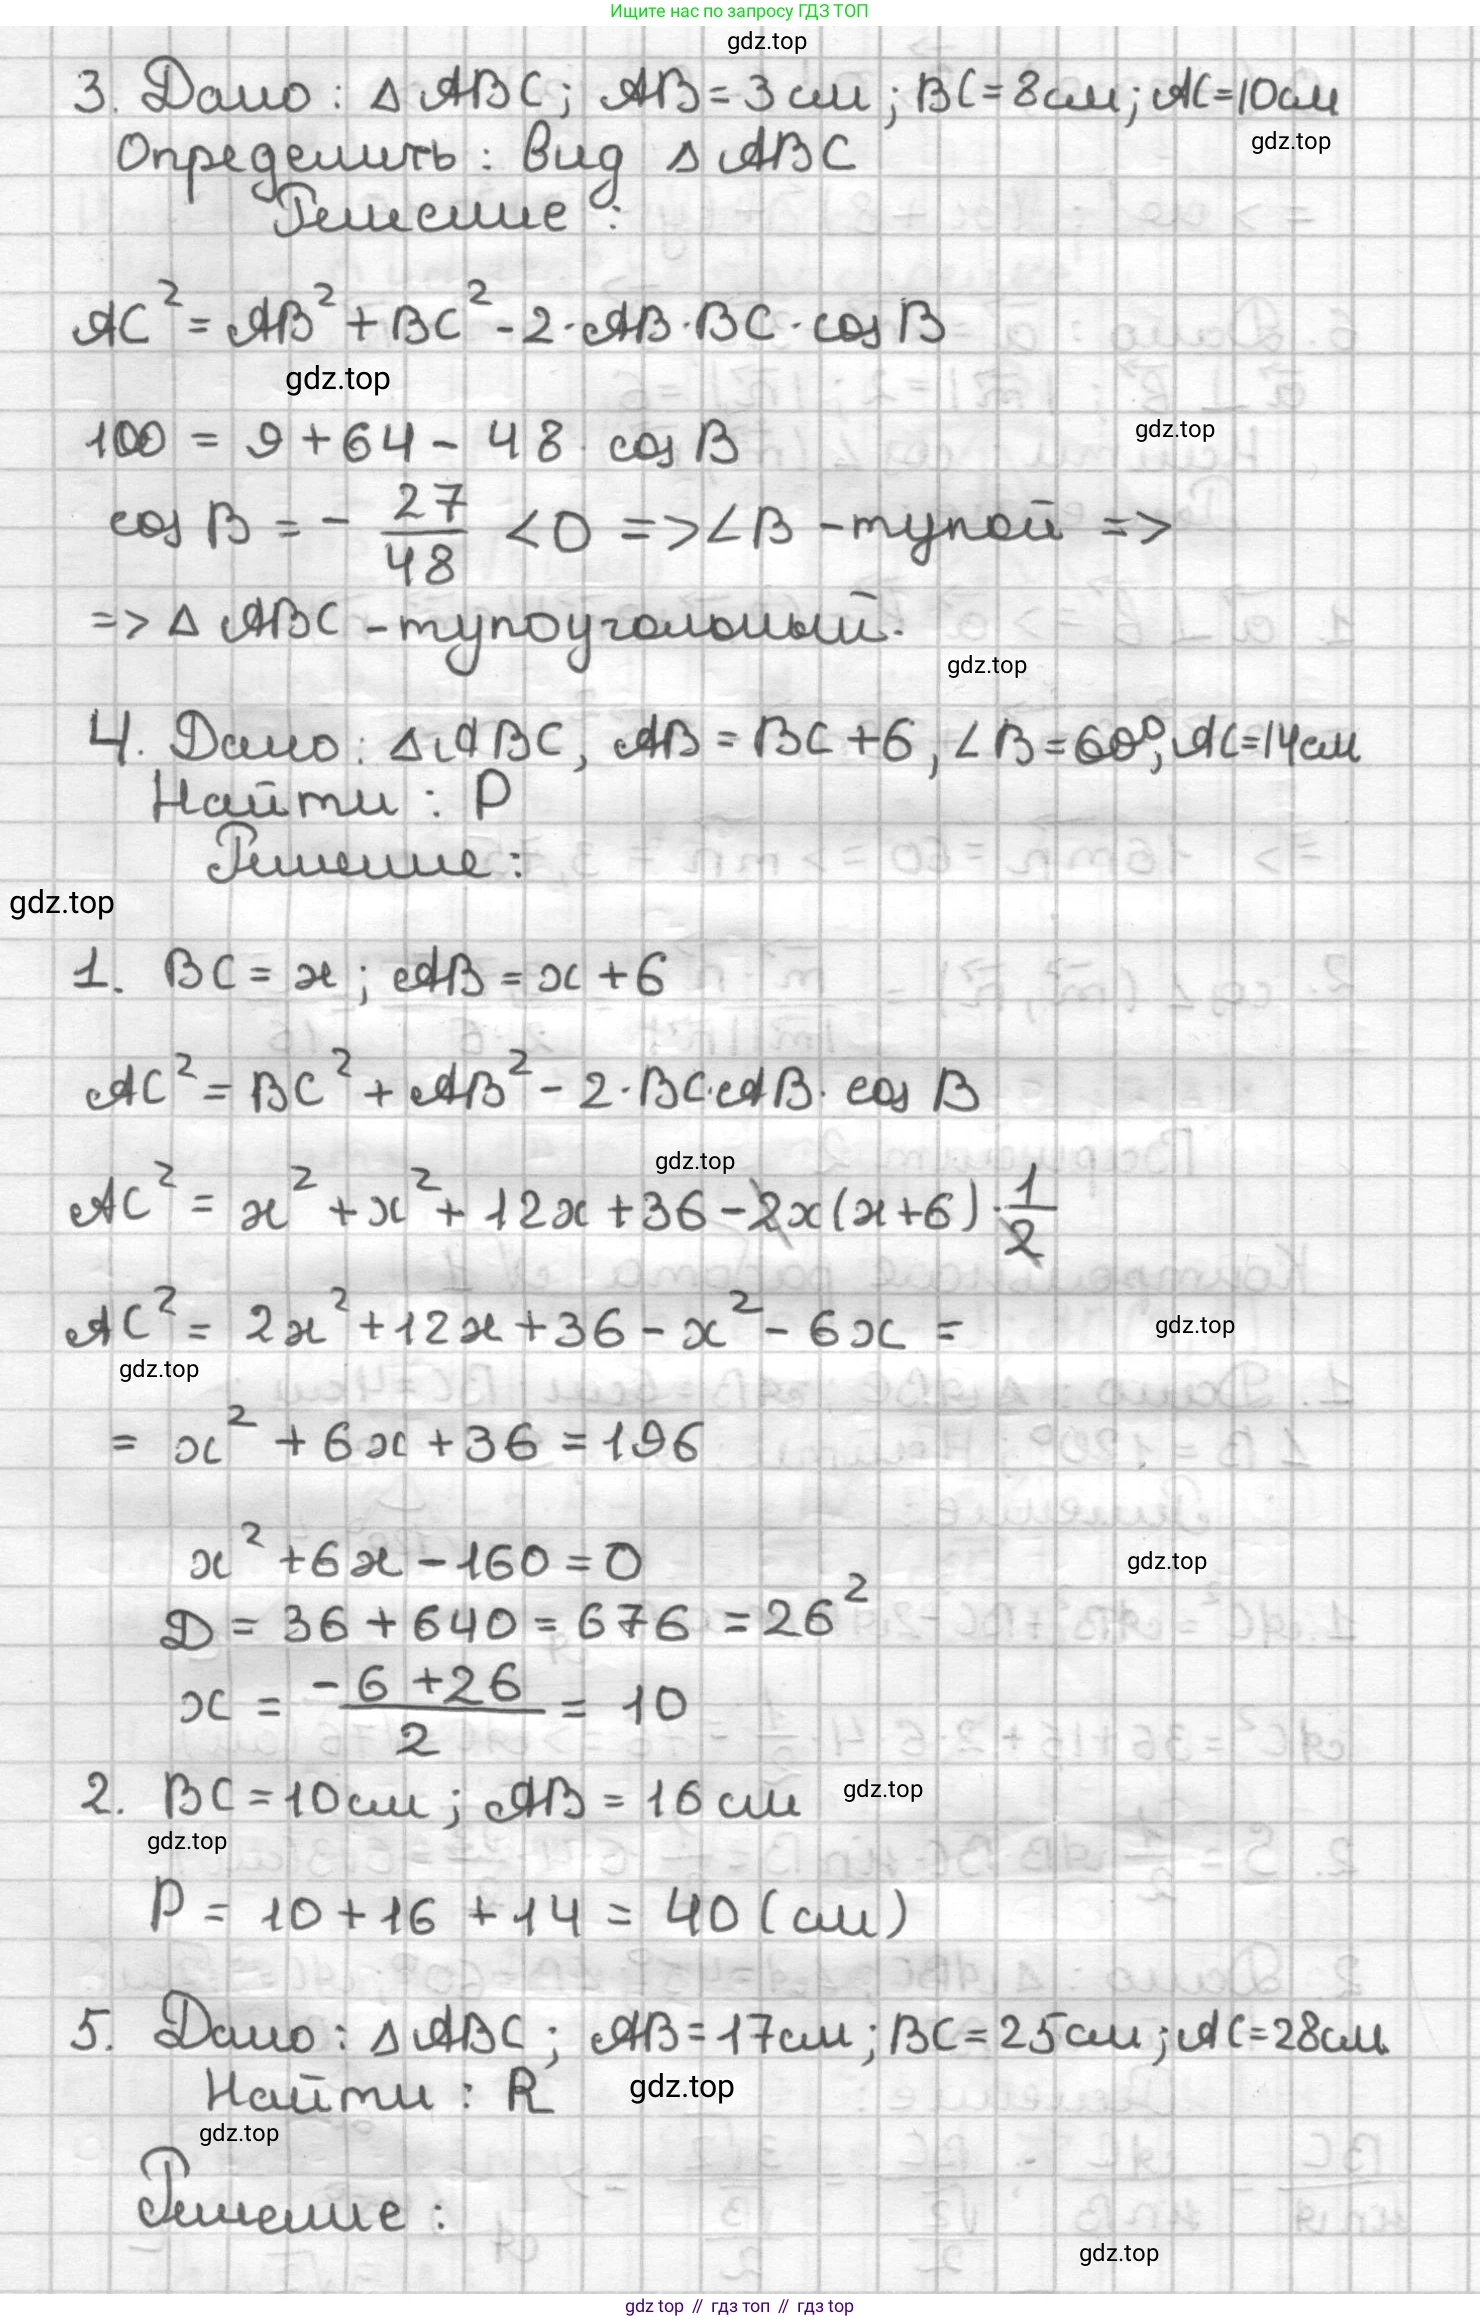 Ищите нас по запросу ГДЗ ТОП
gdz.top
3. Дано: △ABC; AB=3см; BC=8см; AC=10см
gdz.top
Определить: вид △ABC
Решение:
AC² = AB² + BC² - 2·AB·BC·cos B
gdz.top
100 = 9 + 64 - 48 · cos B
gdz.top
cos B = - 27/48 < 0 => ∠B - тупой =>
=> △ABC - тупоугольный.
gdz.top
4. Дано: △ABC, AB = BC + 6, ∠B = 60°, AC=14см
Найти: P
Решение:
gdz.top
1. BC = x; AB = x + 6
AC² = BC² + AB² - 2·BC·AB·cos B
gdz.top
AC² = x² + x² + 12x + 36 - 2x(x+6)·1/2
AC² = 2x² + 12x + 36 - x² - 6x =
gdz.top
gdz.top
= x² + 6x + 36 = 196
x² + 6x - 160 = 0
gdz.top
D = 36 + 640 = 676 = 26²
x = (-6 + 26)/2 = 10
2. BC = 10см; AB = 16 см
gdz.top
gdz.top
P = 10 + 16 + 14 = 40 (см)
5. Дано: △ABC; AB=17см; BC=25см; AC=28см
Найти: R
gdz.top
gdz.top
Решение:
gdz.top
gdz top // гдз топ // гдз top